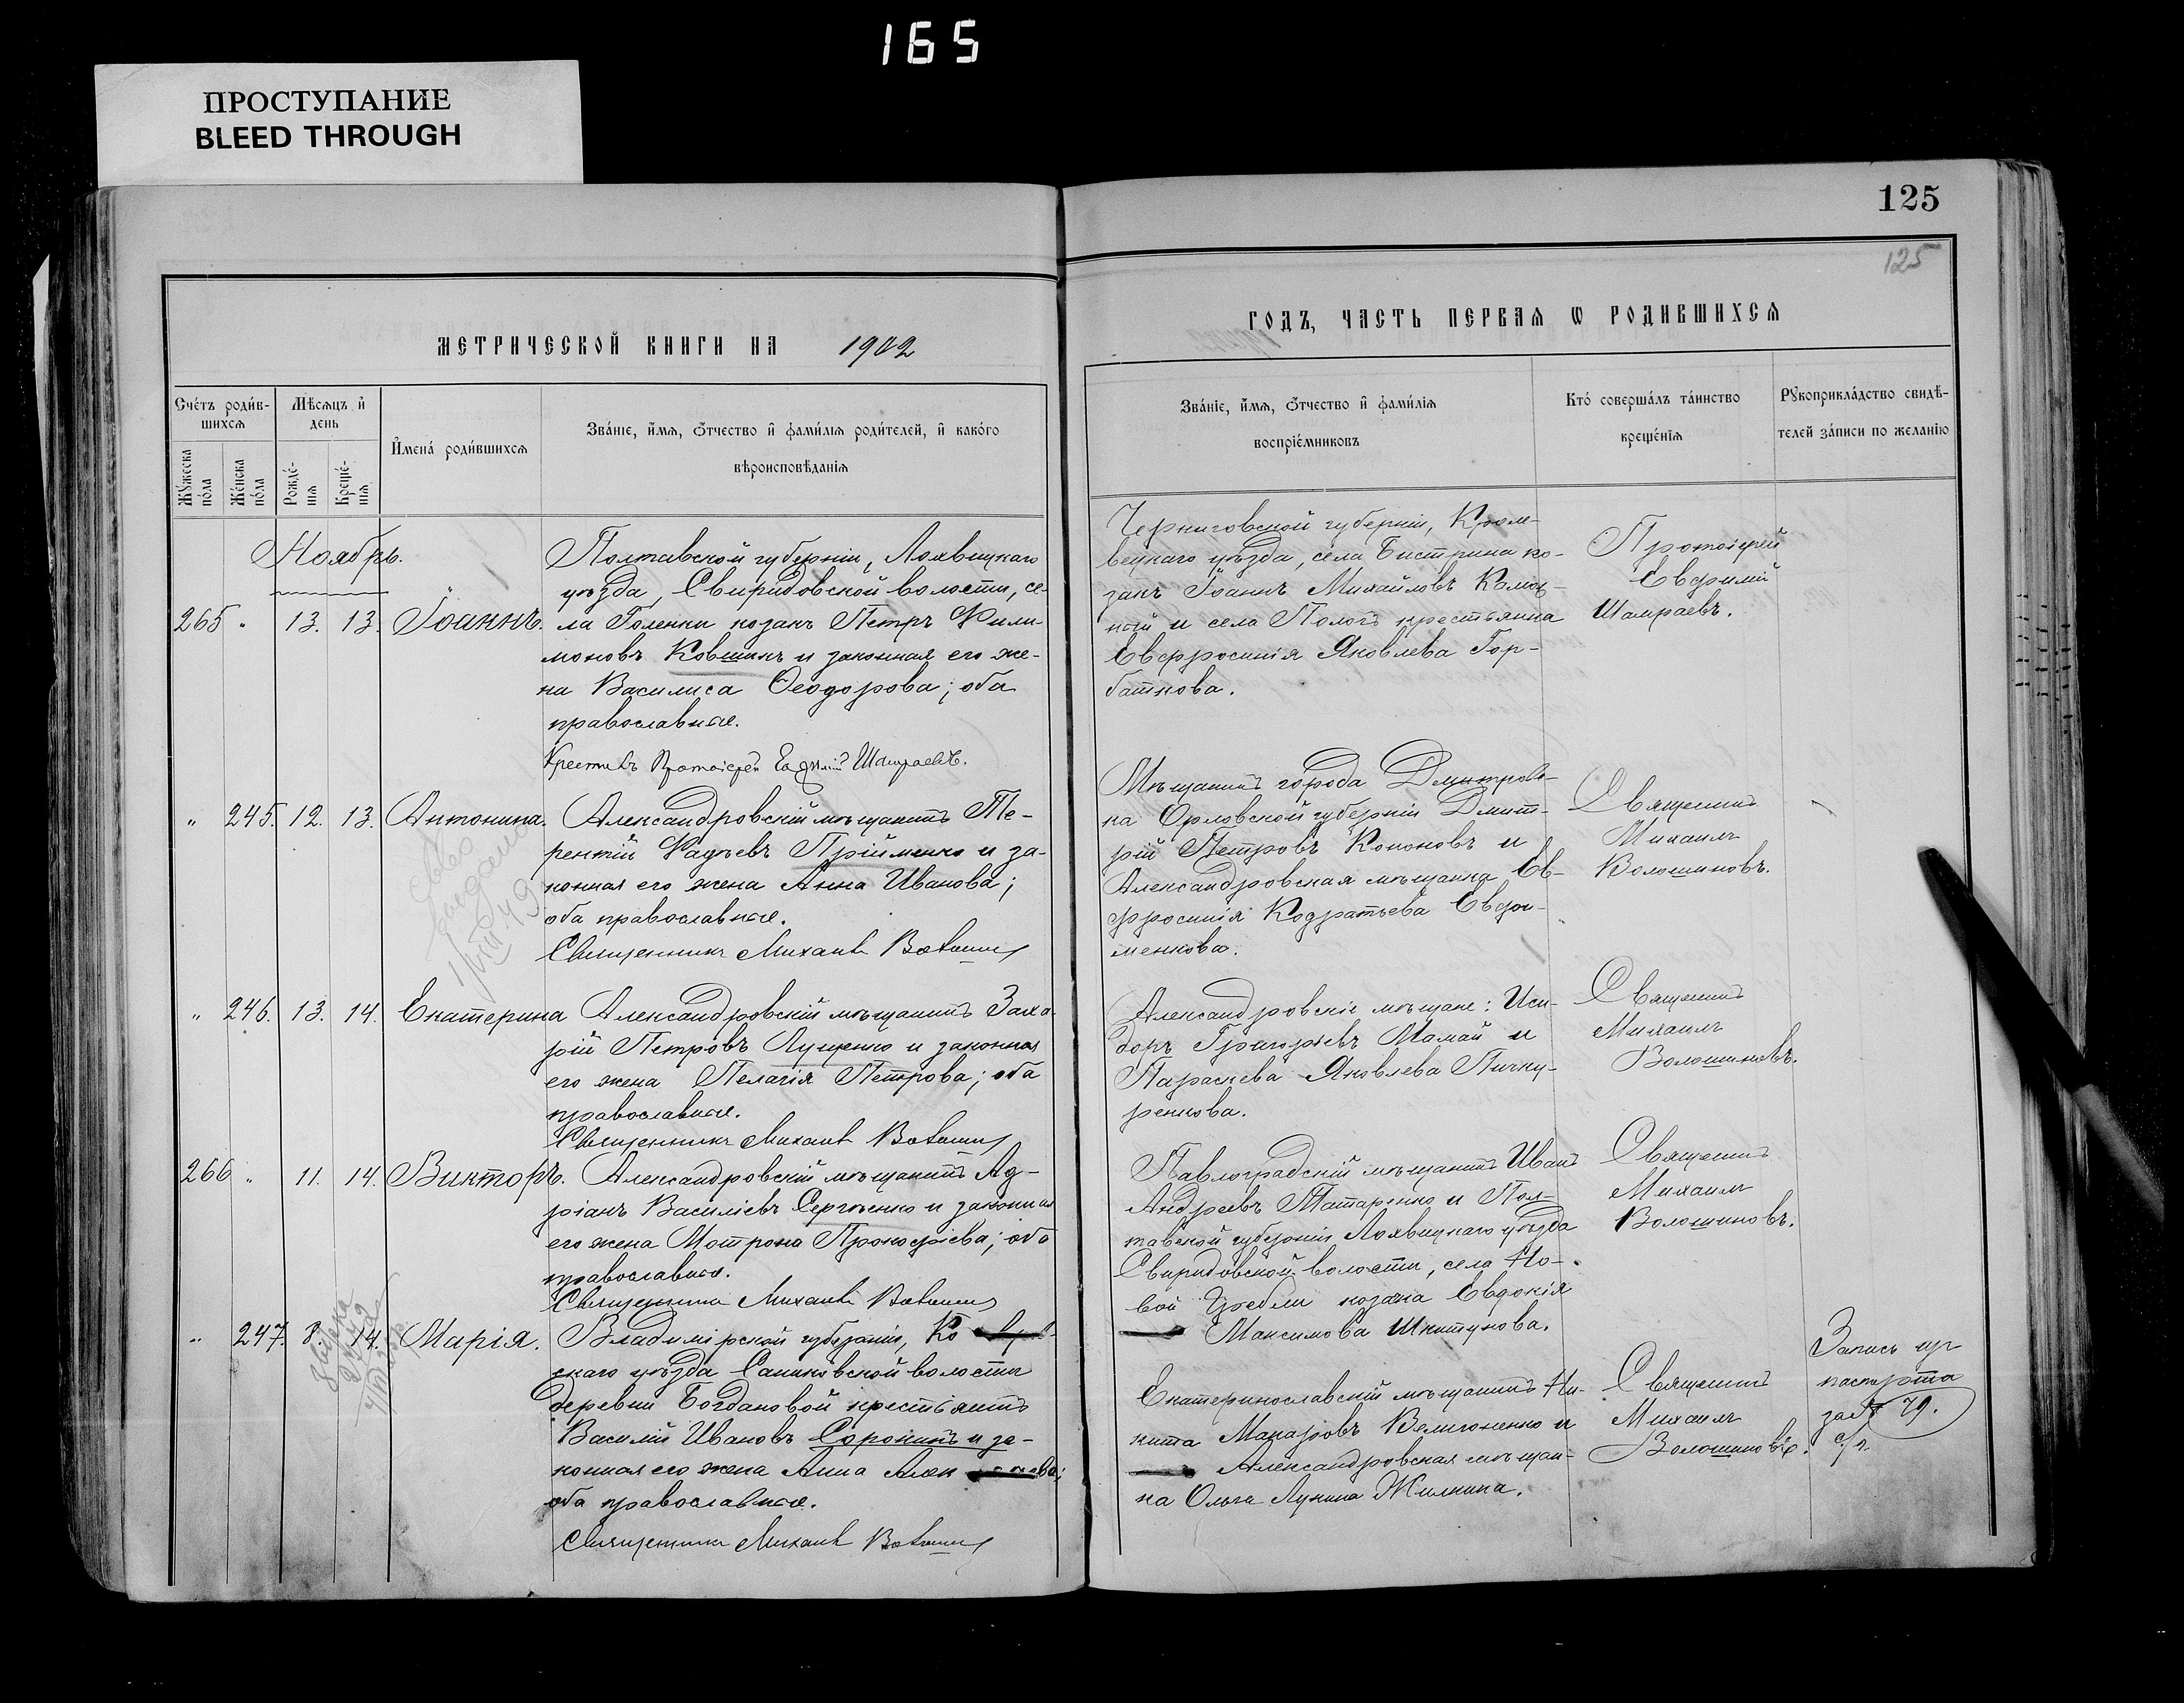 165
ПРОСТУПАНИЕ
BLEED THROUGH
125
125
МЕТРИЧЕСКОЙ КНИГИ НА 1902
ГОДЪ, ЧАСТЬ ПЕРВАЯ Ѡ РОДИВШИХСЯ
Счетъ родив-
шихся
Мужеска
пола
Женска
пола
Мѣсяцъ и
день
Рожде-
нія
Креще-
нія
Имена родившихся
Званіе, имя, отчество и фамилія родителей, и какого
вѣроисповѣданія
Званіе, имя, отчество и фамилія
воспріемниковъ
Кто совершалъ таинство
крещенія
Рукоприкладство свидѣ-
телей записи по желанію
Ноябрь.
265 " 13. 13. Іоаннъ.
Полтавской губерніи, Лохвицкаго
уѣзда, Свиридовской волости, се-
ла Голенки козакъ Петръ Фили-
моновъ Ковшикъ и законная его же-
на Василиса Ѳеодорова; оба
православные.
Крестилъ Протоіерей Евфимій Шамраевъ.
Черниговской губерніи, Кроле-
вецкаго уѣзда, села Бистрика ко-
закъ Іоаннъ Михайловъ
и села Пологъ крестьянка
Евфросинія Яковлева Гор-
баткова.
Протоіерей
Евфимій
Шамраевъ.
" 245. 12. 13. Антонина.
Александровскій мѣщанинъ Те-
рентій Фадѣевъ Прійменко и за-
конная его жена Анна Иванова;
оба православные.
Священникъ Михаилъ Волошиновъ
Мѣщанинъ города Дмитров-
ка Орловской губерніи Дмит-
рій Петровъ Кононовъ и
Александровская мѣщанка Ев-
фросинія Кодратьева Евфи-
менкова.
Священникъ
Михаилъ
Волошиновъ.
" 246. 13. 14. Екатерина
Александровскій мѣщанинъ Заха-
рій Петровъ Лущенко и законная
его жена Пелагія Петрова; оба
православные.
Священникъ Михаилъ Волошиновъ
Александровскіе мѣщане: Иси-
доръ Григорьевъ Мамай и
Параскева Яковлева Пичку-
ренкова.
Священникъ
Михаилъ
Волошиновъ.
266 " 11. 14. Викторъ.
Александровскій мѣщанинъ Ад-
ріанъ Василіевъ Сергѣенко и законная
его жена Мотрона Прокофіева; оба
православные.
Священникъ Михаилъ Волошиновъ
Павлоградскій мѣщанинъ Иванъ
Андреевъ Татаренко и Пол-
тавской губерніи Лохвицкаго уѣзда
Свиридовской волости, села Но-
вой Гребли козачка Евдокія
Максимова Шкитунова.
Священникъ
Михаилъ
Волошиновъ.
" 247. 8. 14. Марія.
Владимірской губерніи, Ков-
скаго уѣзда Санниковской волости
деревни Богдановой крестьянинъ
Василій Ивановъ Сорокинъ и за-
конная его жена Анна
оба православные.
Священникъ Михаилъ Волошиновъ
Екатеринославскій мѣщанинъ Ни-
кита Макаровъ Великоненко и
Александровская мѣщан-
ка Ольга Лукина Жилкина.
Священникъ
Михаилъ
Волошиновъ.
Запись из
паспорта
за № 79.